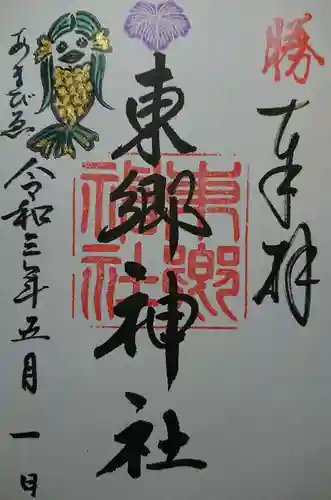 勝
奉拝
東郷神社
東郷神社
あまびゑ
令和三年五月一日